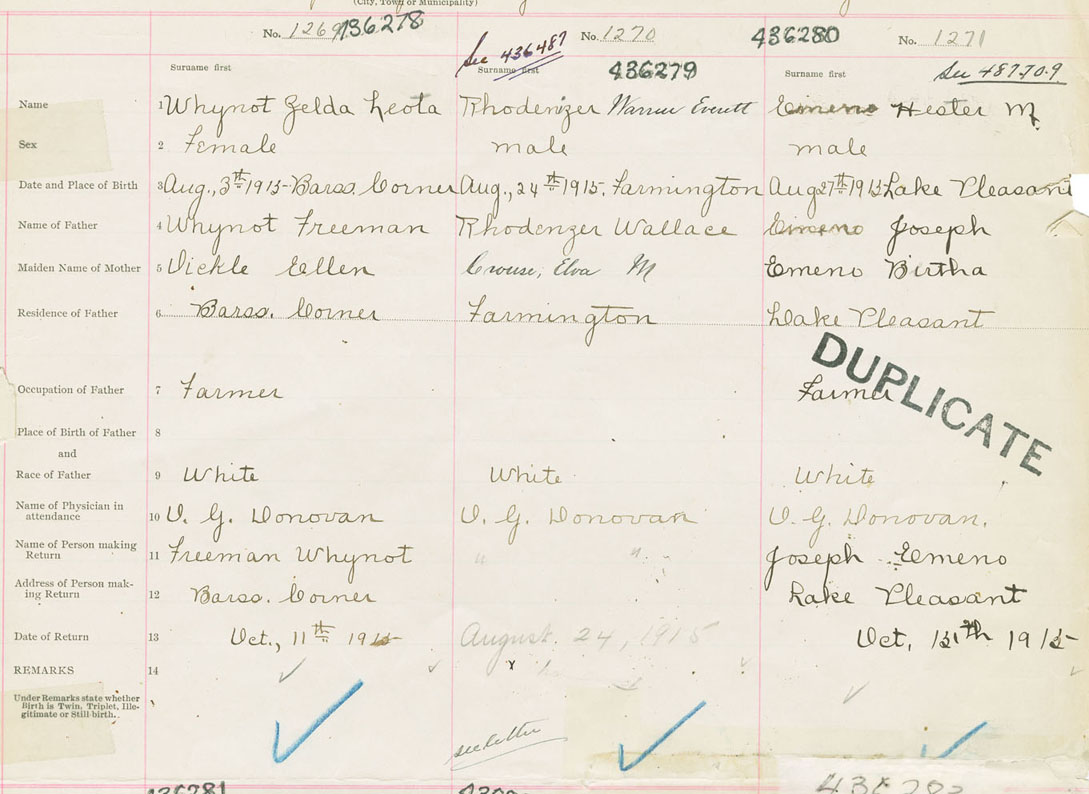 (City, Town or Municipality)
No. 1269 436278
See 436487 No. 1270
436280 No. 1271
Surname first
Surname first 436279
Surname first See 487709
Name 1 Whynot Zelda Leota Rhodenizer Warren Everett Emeno Hester M.
Sex 2 Female male male
Date and Place of Birth 3 Aug., 3th 1915- Barss. Corner Aug., 24th 1915. Farmington Aug 27th 1915 Lake Pleasant
Name of Father 4 Whynot Freeman Rhodenzer Wallace Emeno Joseph
Maiden Name of Mother 5 Vickle Ellen Crouse, Elva M Emeno Birtha
Residence of Father 6 Barss. Corner Farmington Lake Pleasant
DUPLICATE
Occupation of Father 7 Farmer Farmer
Place of Birth of Father 8
and
Race of Father 9 White White White
Name of Physician in
attendance 10 O. G. Donovan O. G. Donovan O. G. Donovan.
Name of Person making
Return 11 Freeman Whynot " " Joseph Emeno
Address of Person mak-
ing Return 12 Barss. Corner Lake Pleasant
Date of Return 13 Oct., 11th 1915 August 24, 1915 Oct, 15th 1915
REMARKS 14
Under Remarks state whether
Birth is Twin, Triplet, Ille-
gitimate or Still birth.
see letter
436281